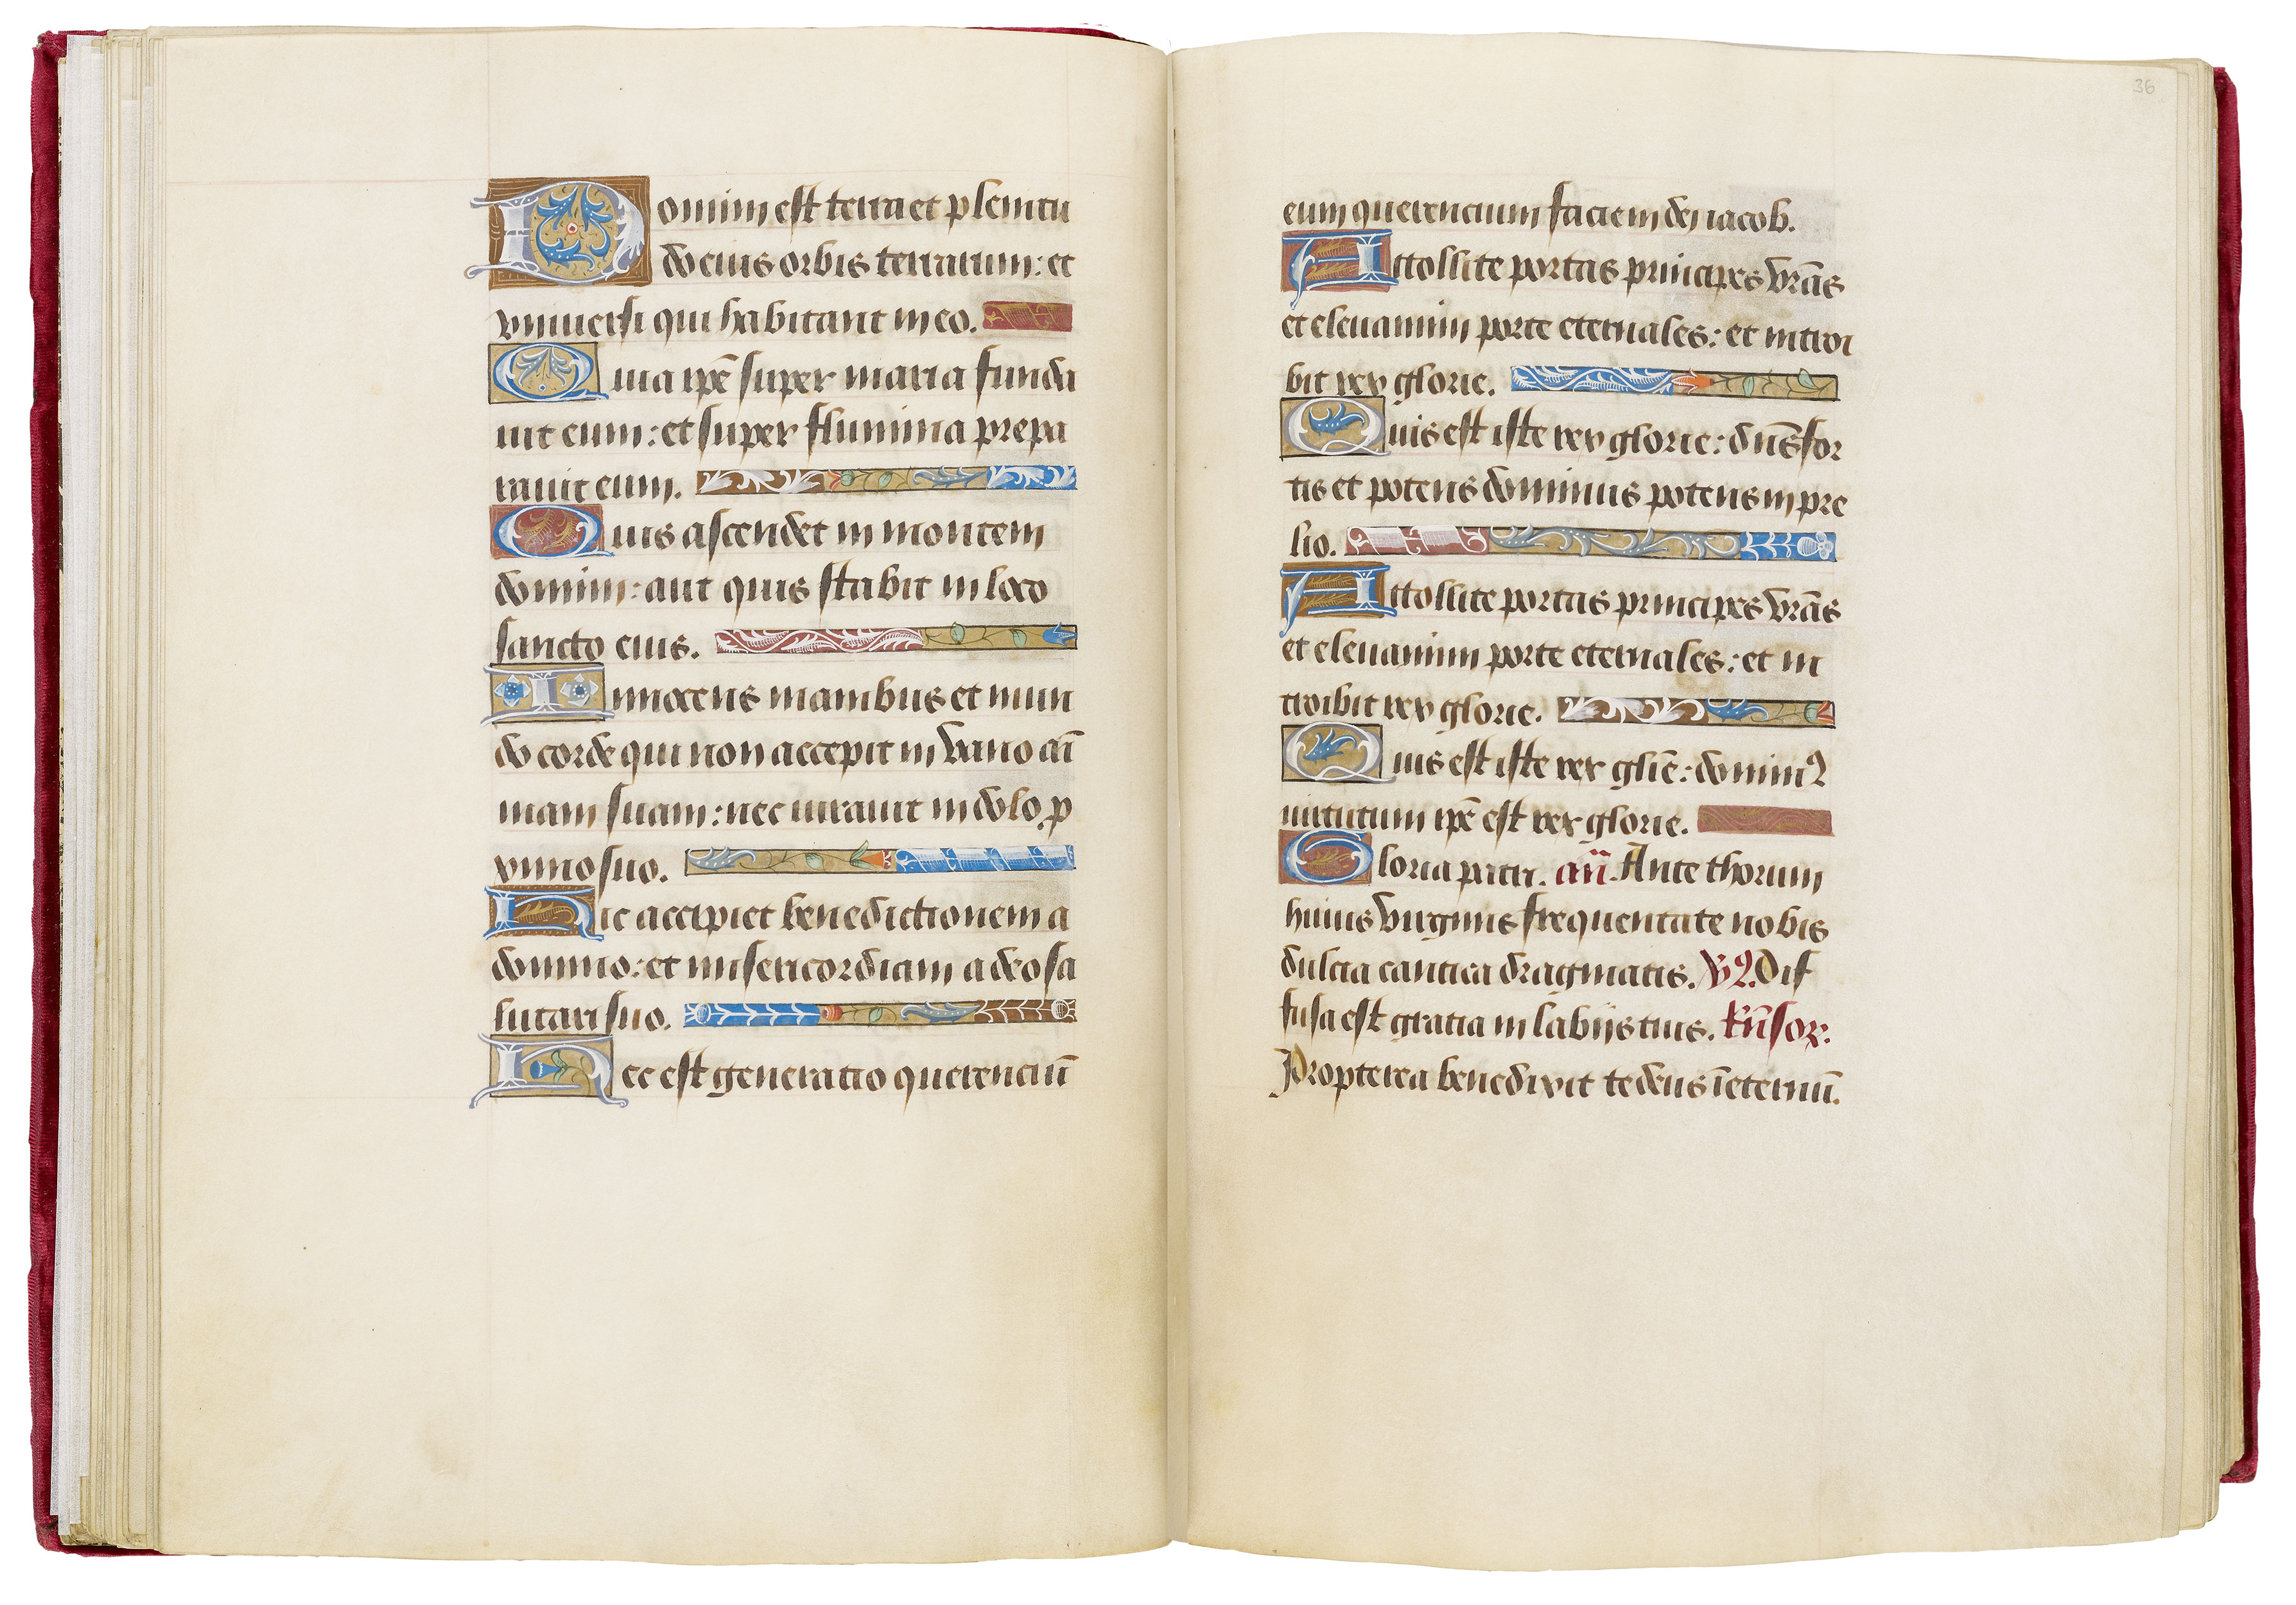 Domini est terra et plenitu
do eius orbis terrarum: et
vniuersi qui habitant in eo.
Quia ipē super maria funda
uit eum: et super flumina prepa
rauit eum.
Quis ascendet in montem
domini: aut quis stabit in loco
sancto eius.
Innocens manibus et mun
do corde qui non accepit in vano aī
mam suam: nec iurauit in dolo p
ximo suo.
Hic accipiet benedictionem a
domino: et misericordiam a deo sa
lutari suo.
Hec est generatio querenciū
36
eum querencium faciem dei iacob.
Attollite portas principes vrās
et eleuamini porte eternales: et introi
bit rex glorie.
Quis est iste rex glorie: dn̄s for
tis et potens dominus potens in pre
lio.
Attollite portas principes vrās
et eleuamini porte eternales: et in
troibit rex glorie.
Quis est iste rex gliē: domin⁹
uirtutum ipē est rex glorie.
Gloria patri. an̄. Ante thorum
huius virginis frequentate nobis
dulcia cantica dragmatis. V⁹. Dif
fusa est gratia in labijs tuis.
Propterea benedixit te deus ī eternū.